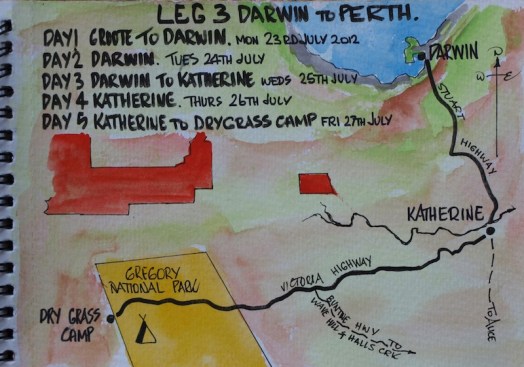 LEG 3 DARWIN TO PERTH.
DAY 1 GROOTE TO DARWIN. MON 23RD JULY 2012
DAY 2 DARWIN. TUES 24TH JULY
DAY 3 DARWIN TO KATHERINE WEDS 25TH JULY
DAY 4 KATHERINE. THURS 26TH JULY
DAY 5 KATHERINE TO DRYGRASS CAMP FRI 27TH JULY
DARWIN
N
W
E
STUART
HIGHWAY
KATHERINE
VICTORIA HIGHWAY
GREGORY
NATIONAL PARK
DRY GRASS
CAMP
BUNTINE HWY TO
WAVE HILL & HALLS CRK
TO ALICE